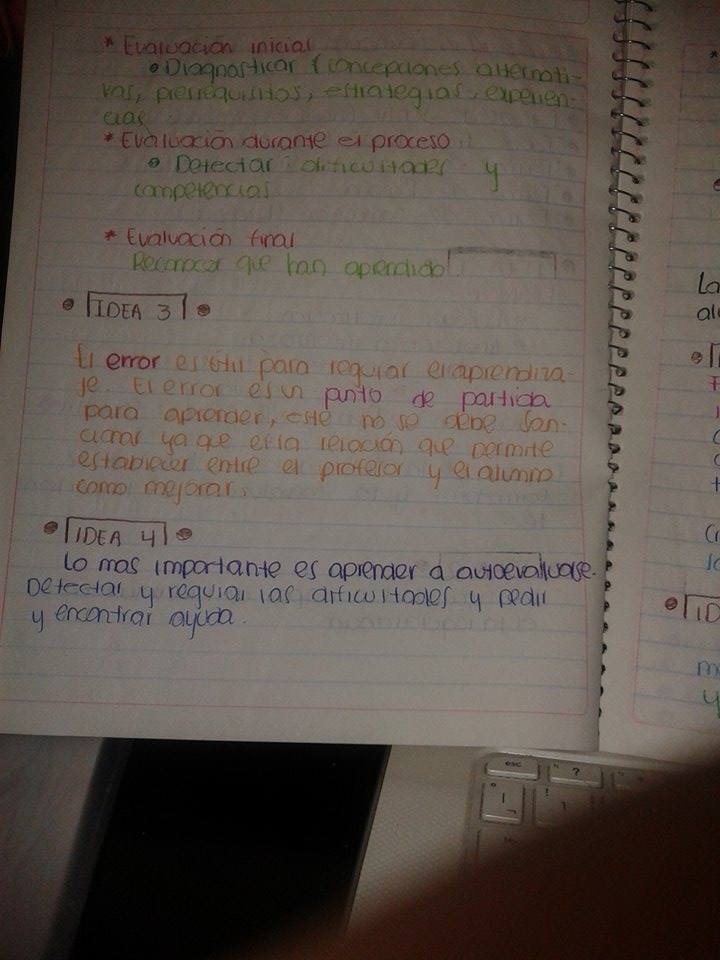 * Evaluación inicial
• Diagnosticar (concepciones alternati-
vas, prerrequisitos, estrategias, experien-
cias
* Evaluación durante el proceso
• Detectar dificultades y
competencias
* Evaluación final
Reconocer que han aprendido
• IDEA 3 •
El error es útil para regular el aprendiza-
je. El error es un punto de partida
para aprender, este no se debe san-
cionar ya que es la relación que permite
establecer entre el profesor y el alumno
como mejorar.
• IDEA 4 •
Lo mas importante es aprender a autoevaluarse.
Detectar y regular las dificultades y pedir
y encontrar ayuda.
La
al
ID
m
y
esc
?
!